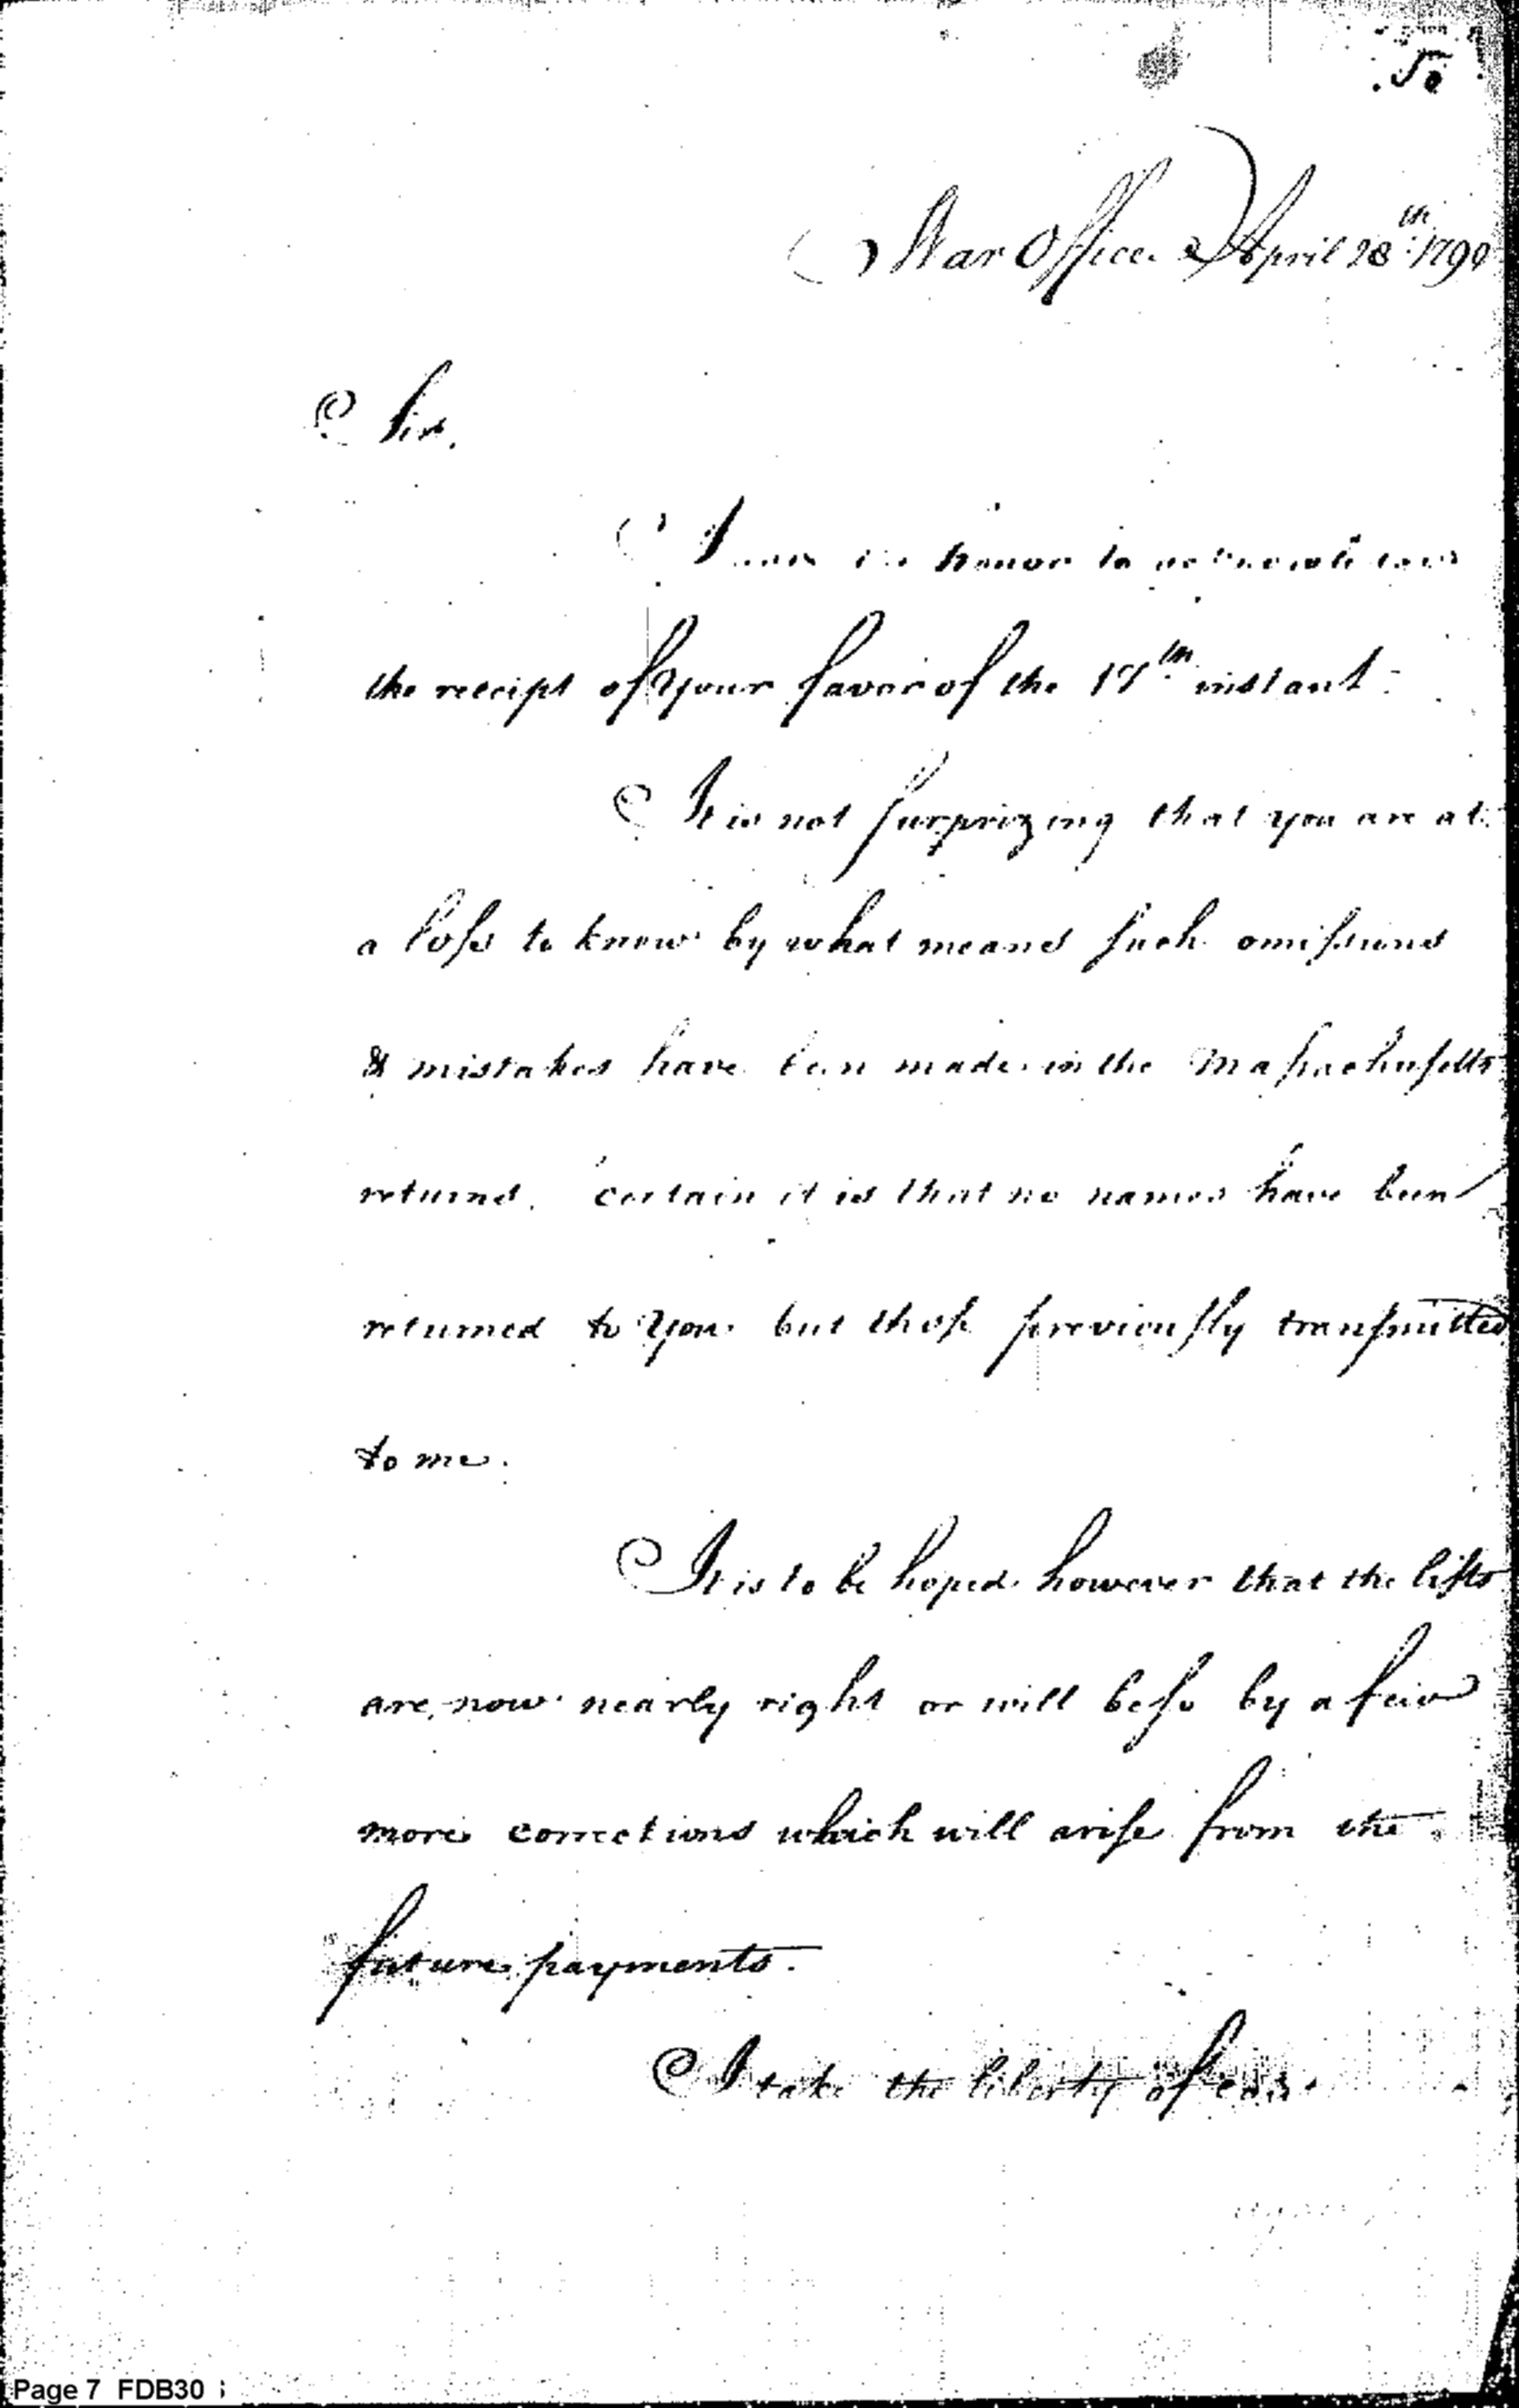 50
War Office April 28th 1790
Sir.
I have the honor to acknowledge
the receipt of Your favor of the 17th instant.
It is not surprizing that you are at
a loss to know by what means such omissions
& mistakes have been made in the Massachusetts
returns. certain it is that no names have been
returned to You but those previously transmitted
to me.
It is to be hoped however that the lists
are now nearly right or will be so by a few
more corrections which will arise from the
future payments.
I take the liberty of
Page 7 FDB30